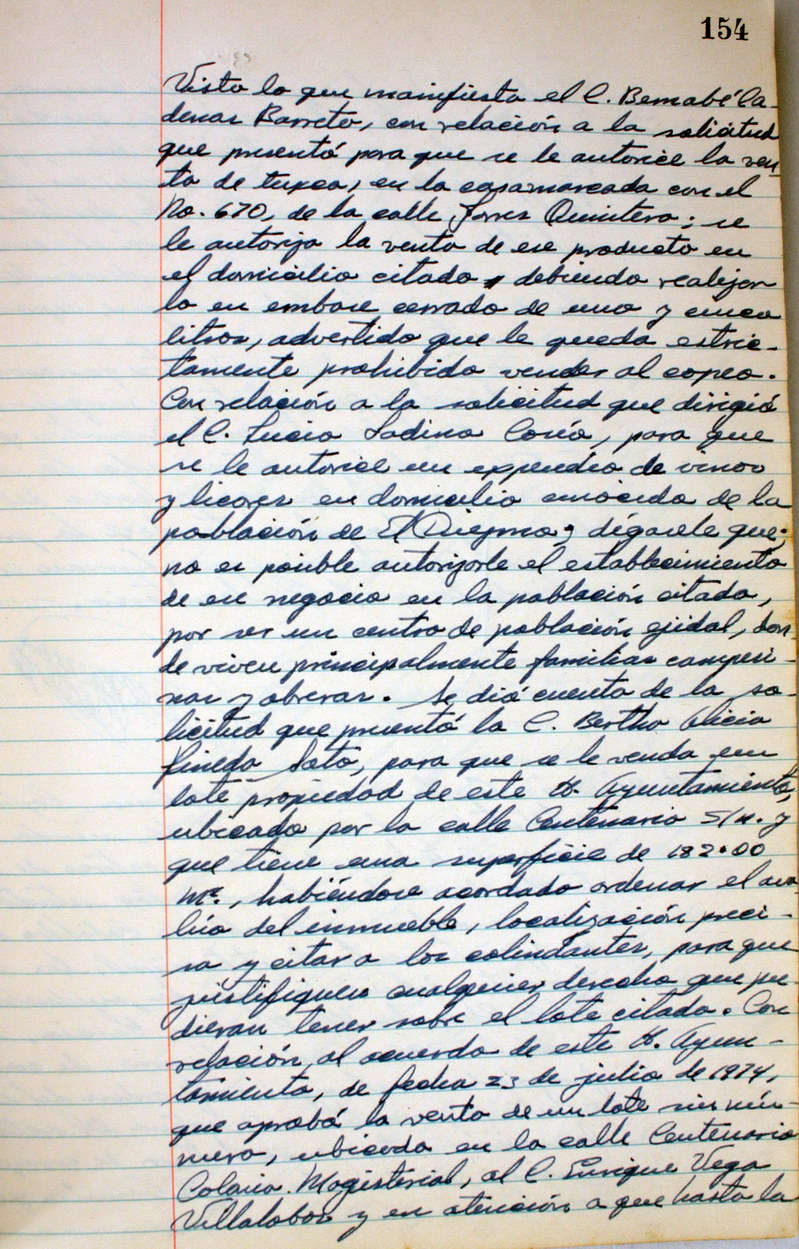 154
Visto lo que manifiesta el C. Bernabé Ca-
denas Barreto, con relación a la solicitud
que presentó para que se le autorice la ven-
ta de tuxca, en la casa marcada con el
No. 670, de la calle Torres Quintero; se
le autoriza la venta de ese producto en
el domicilio citado, debiendo realizar
lo en embase cerrado de uno y cinco
litros, advertido que le queda estric-
tamente prohibido vender al copeo.
Con relación a la solicitud que dirigió
el C. Lucio Ladino Coria, para que
se le autorice un expendio de vinos
y licores en domicilio conocido de la
población de El Diezmo; dígasele que;
no es posible autorizarle el establecimiento
de ese negocio en la población citada,
por ser un centro de población ejidal, don
de viven principalmente familias campesi-
nas y obreras. Se dió cuenta de la so-
licitud que presentó la C. Bertha Alicia
Pineda Soto, para que se le venda un
lote propiedad de este H. Ayuntamiento,
ubicado por la calle Centenario S/n. y
que tiene una superficie de 182.00
M2., habiéndose acordado ordenar el ava
lúo del inmueble, localización preci-
sa y citar a los colindantes, para que
justifiquen cualquier derecho que pu-
dieran tener sobre el lote citado. Con
relación al acuerdo de este H. Ayun-
tamiento, de fecha 23 de julio de 1974,
que aprobó la venta de un lote sin nú-
mero, ubicado en la calle Centenario
Colonia Magisterial, al C. Enrique Vega
Villalobos y en atención a que hasta la